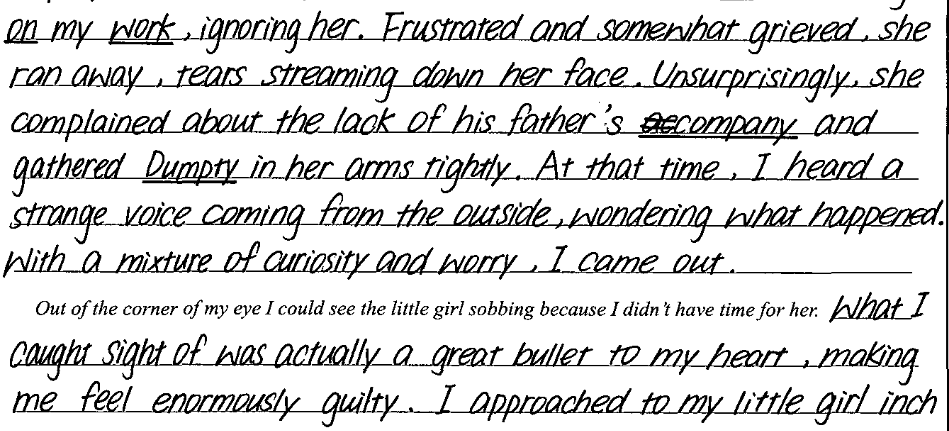 on my work, ignoring her. Frustrated and somewhat grieved, she
ran away, tears streaming down her face. Unsurprisingly, she
complained about the lack of his father's company and
gathered Dumpty in her arms tightly. At that time, I heard a
strange voice coming from the outside, wondering what happened.
With a mixture of curiosity and worry, I came out.
Out of the corner of my eye I could see the little girl sobbing because I didn't have time for her. What I
caught sight of was actually a great bullet to my heart, making
me feel enormously guilty. I approached to my little girl inch